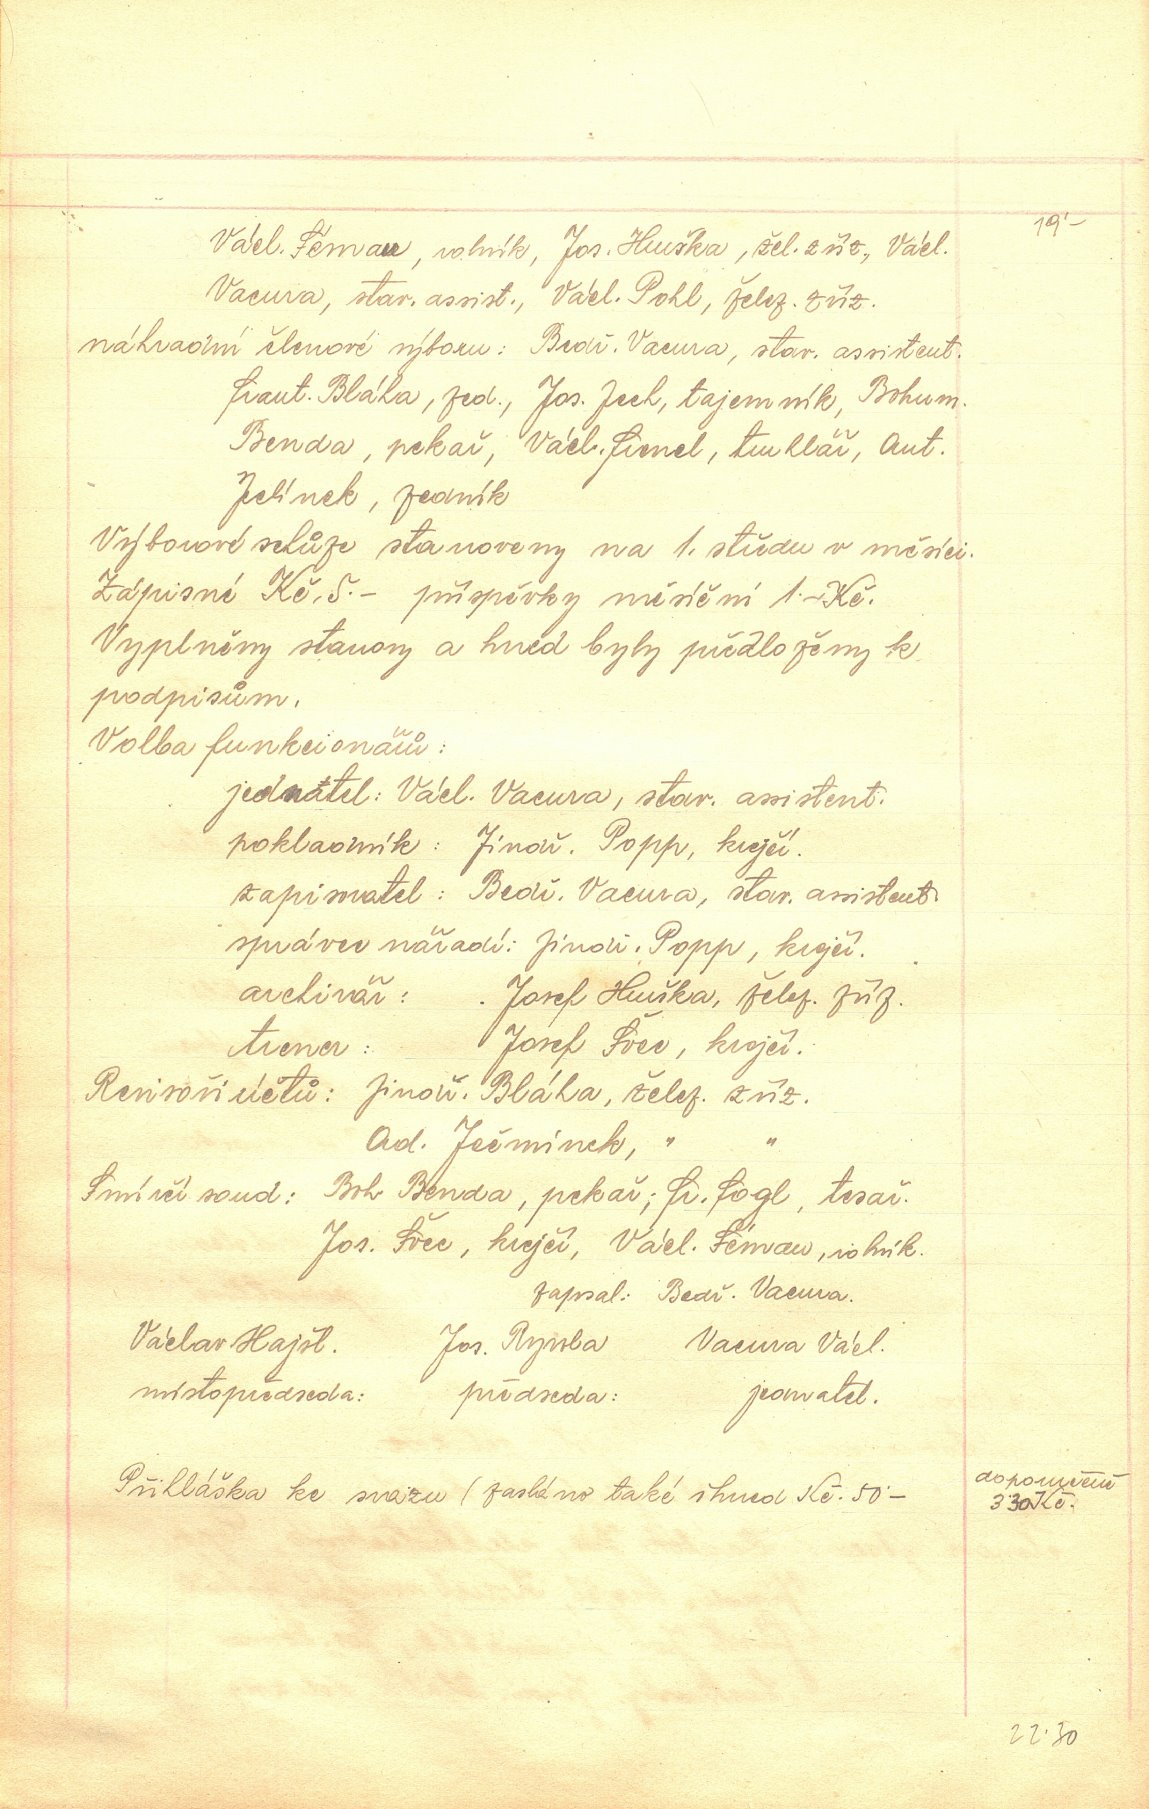 19·–
Václ. Téman, rolník, Jos. Huiška, žel. zříz., Václ.
Vacura, stav. assist., Václ. Pohl, želez. zříz.
náhradní členové výboru: Bedř. Vacura, stav. assistent.
Frant. Bláha, zed., Jos. Zech, tajemník, Bohum.
Benda, pekař, Václ. Fienel, truhlář, Ant.
Jelínek, zedník
Výborové schůze stanoveny na 1. středu v měsíci.
Zápisné Kč. 5.– příspěvky měsíční 1.– Kč.
Vyplněny stanovy a hned byly předloženy k
podpisům.
Volba funkcionářů:
jednatel: Václ. Vacura, stav. assistent.
pokladník: Jindř. Popp, krejčí.
zapisovatel: Bedř. Vacura, stav. assistent
správce nářadí: Jindř. Popp, krejčí.
archivář: Josef Huiška, želez. zříz.
trener: Josef Švec, krejčí.
Revisoři účtů: Jindř. Bláha, želez. zříz.
Ad. Ječmínek, " "
Smírčí soud: Boh. Benda, pekař; Fr. Fogl, tesař.
Jos. Švec, krejčí, Václ. Téman, rolník.
zapsal: Bedř. Vacura.
Václav Hajšl. Jos. Ryvola Vacura Václ.
místopředseda: předseda: jednatel.
Přihláška ke svazu (zasláno také ihned Kč. 50·–
doporučeně
3·30 Kč.
22·30